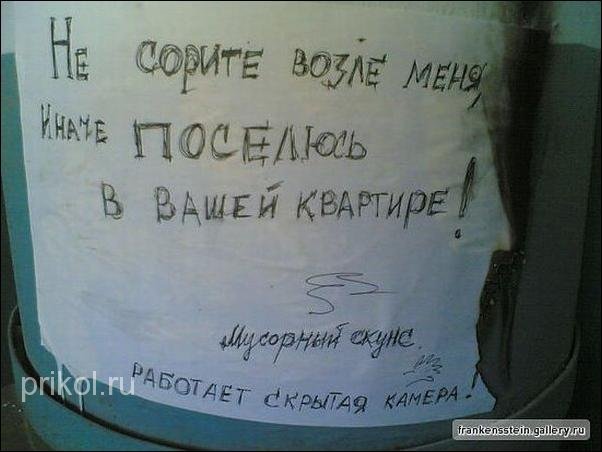 Не сорите возле меня,
иначе ПОСЕЛЮСЬ
в вашей квартире!
Мусорный скунс.
РАБОТАЕТ СКРЫТАЯ КАМЕРА!
prikol.ru
frankensstein.gallery.ru